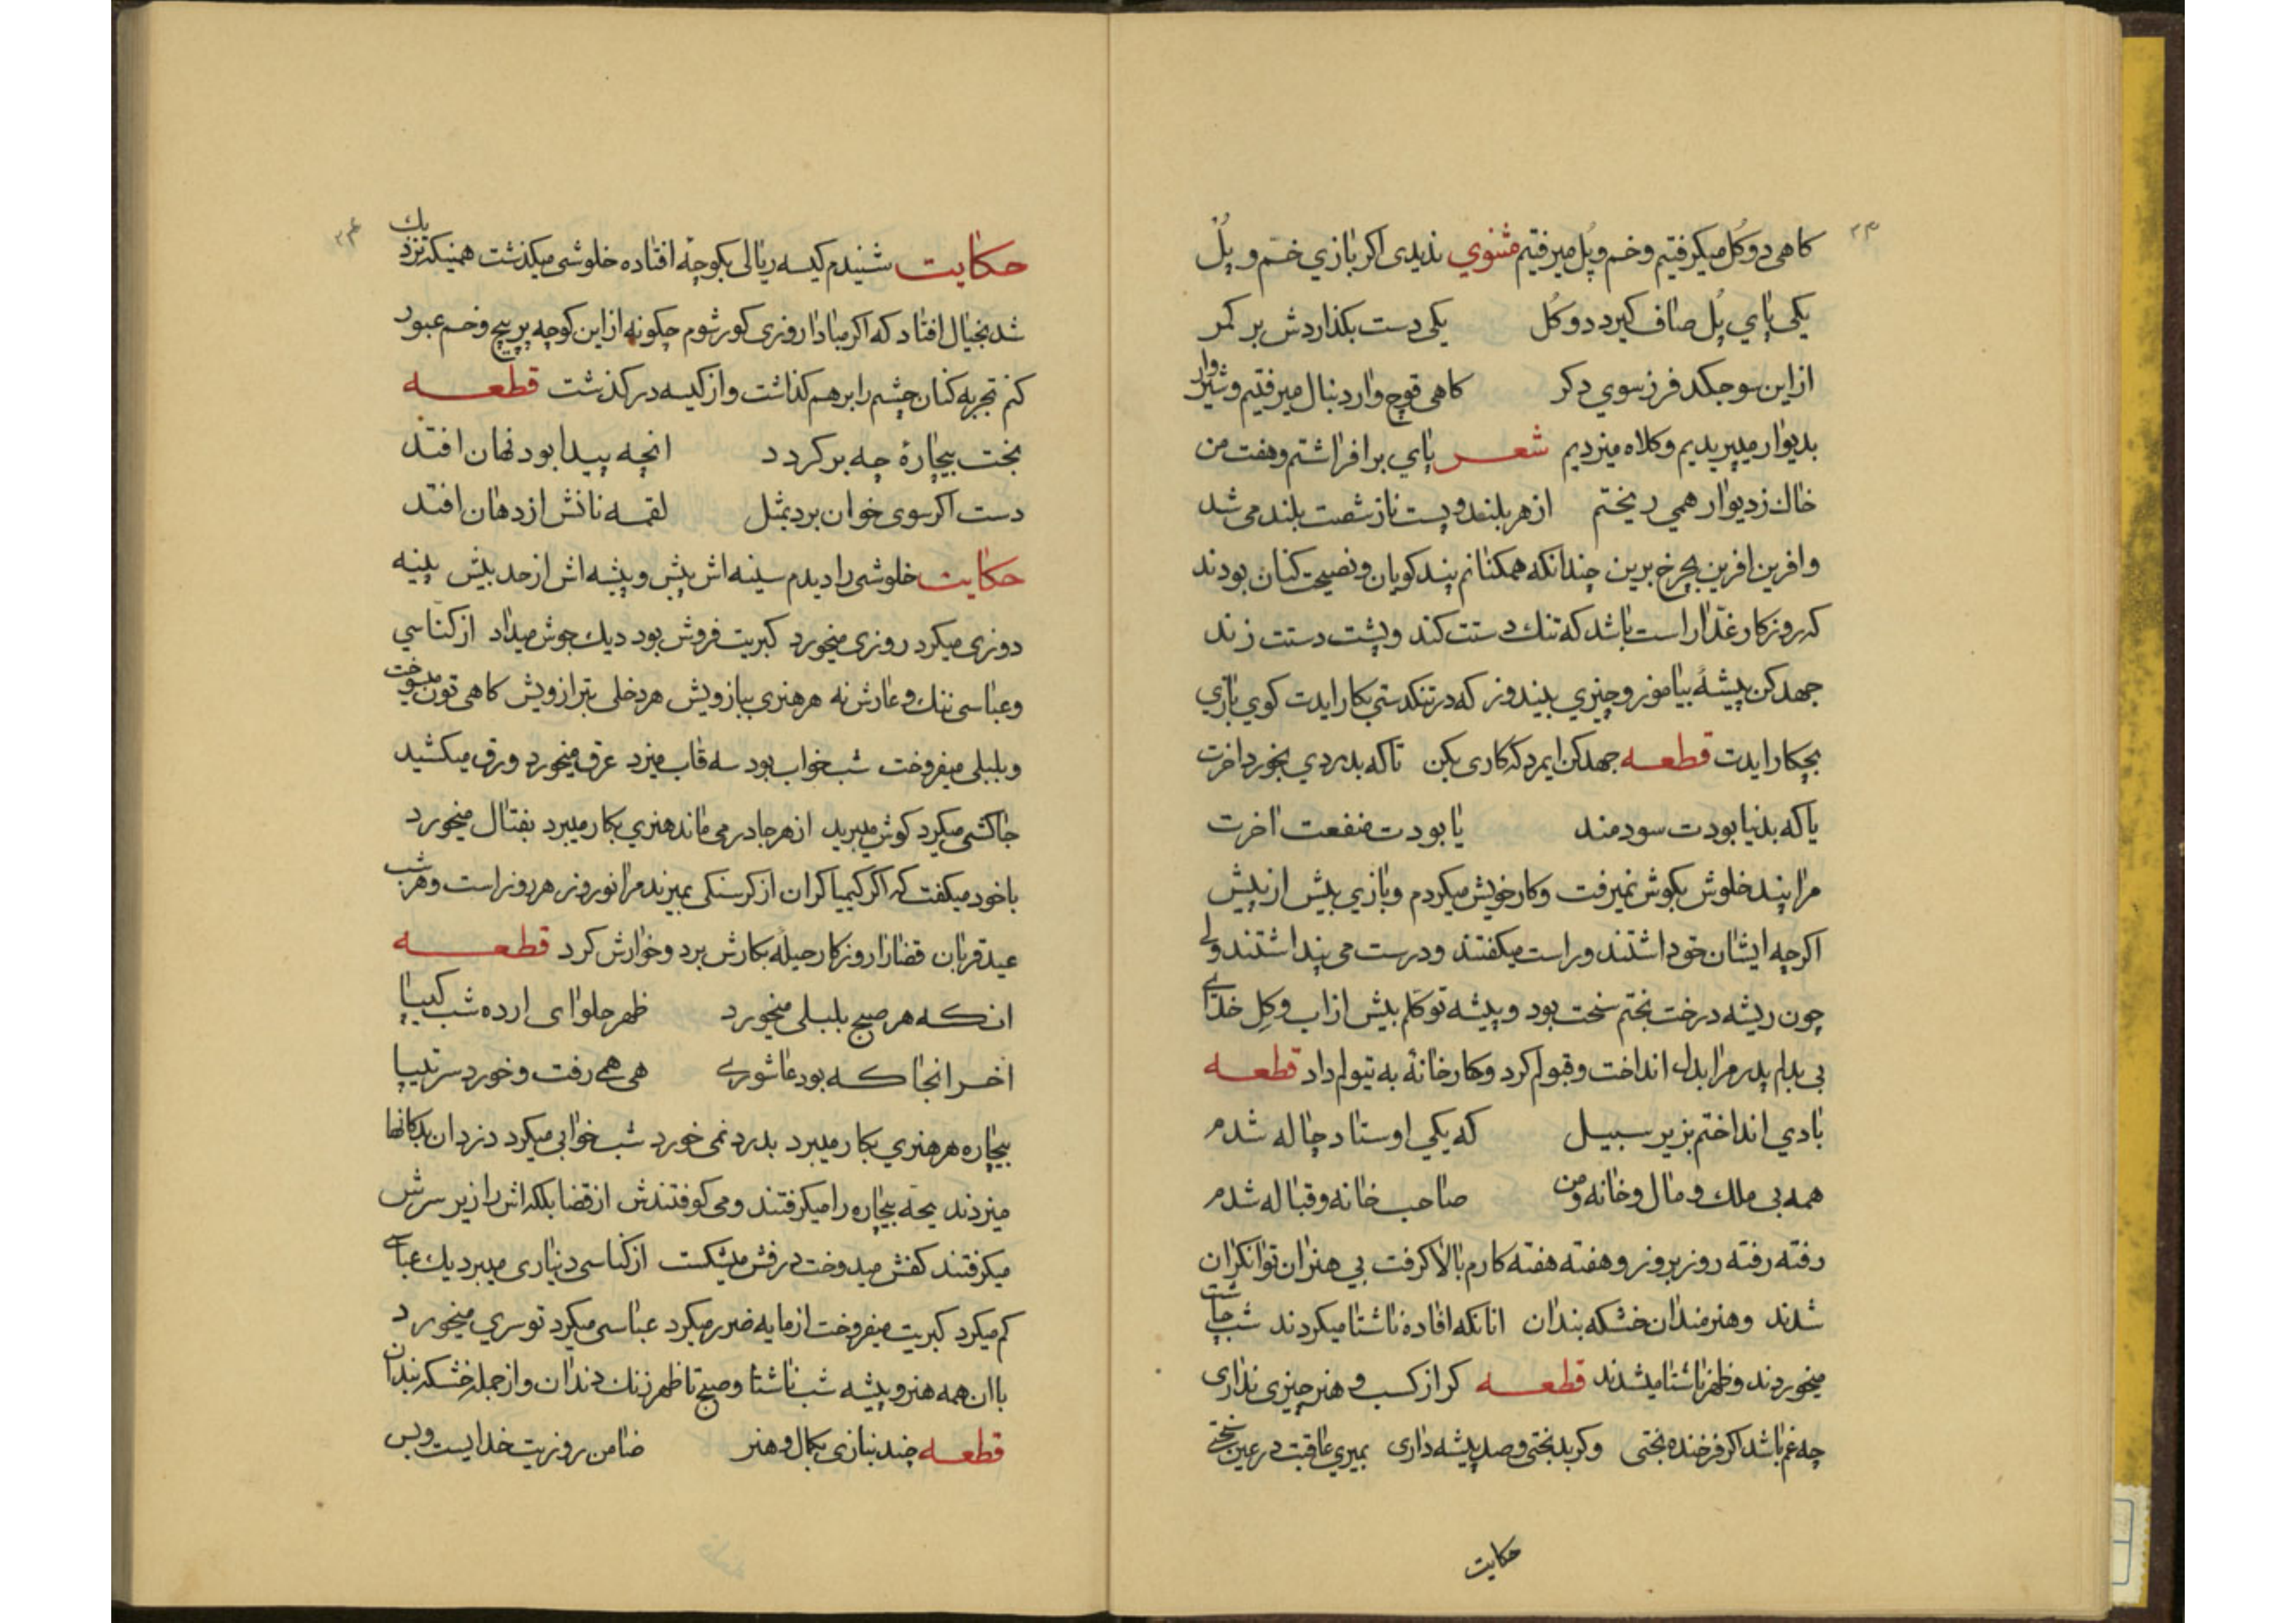 ۲۳
کاهی دوکُل میکرفتیم وخم وپُل میرفتیم مثنوی ندیدی اکر بازی خم و پُل
یکی پای پُل صاف کیرد دوکُل یکی دست بکذاردش بر کمر
از این سو جکد فرز سوی دکر کاهی قوچ وار دنبال میرفتیم و شیر وار
بدیوار میپریدیم وکلاه میزدیم شعر پای برافراشتم وهفت من
خاک ز دیوار همی ریختم از هر بلند و پست ناز شصت بلند می شد
وافرین افرین بچرخ برین چندانکه همکنانم پند کویان ونصیحت کنان بودند
که روزکار غدّار است باشد که تنک دستت کند وپشت دستت زند
جهد کن پیشهٔ بیاموز وچیزی بیندوز که در تنکدستی بکار ایدت کوی بازی
بچکار ایدت قطعه جهد کن ایمرد که کاری بکن تا که بدردی بخورد اخرت
یا که بدنیا بودت سودمند یا بودت منفعت اخرت
مرا پند خلوش بکوش نمیرفت وکار خویش میکردم وبازی بیش از پیش
اکرچه ایشان حق داشتند وراست میکفتند ودرست می پنداشتند ولی
چون ریشه درخت بختم سخت بود وپیشه توکلم بیش از اب وکِل خدای
بی بدلم پدر مرا بدل انداخت وقبولم کرد وکارخانهٔ به تیولم داد قطعه
بادی انداختم بزیر سبیل که یکی اوستاد چاله شدم
همه بی ملک و مال وخانه ومن صاحب خانه وقباله شدم
رفته رفته روز بروز وهفته هفته کارم بالا کرفت بی هنران توانکران
شدند وهنرمندان خشکه بندان انانکه افاده ناشتا میکردند شب چاشت
میخوردند وظهر ناشتا میشدند قطعه کر از کسب و هنر چیزی نداری
چه غم باشد اکر فرخنده بختی وکر بدبختی وصد پیشه داری بمیری عاقبت در عین سختی
حکایت
۲۴
حکایت شنیدم کیسه ریالی بکوچهٔ افتاده خلوشی میکذشت همینکه نزدیک
شد بخیال افتاد که اکر مبادا روزی کور شوم چکونه از این کوچه پر پیچ وخم عبور
کنم تجربه کنان چشم را برهم کذاشت واز کیسه درکذشت قطعه
بخت بیچارهٔ چه برکردد انچه پیدا بود نهان افتد
دست اکر سوی خوان برد بمثل لقمه نانش از دهان افتد
حکایت خلوشی را دیدم سینه اش پیش وپیشه اش از حد بیش پینه
دوزی میکرد روزی میخورد کبریت فروش بود دیک جوش میداد از کنّاسی
وعباسی ننک وعارش نه هر هنری ببازویش هر دخلی بترازویش کاهی تون میسوخت
وبلبلی میفروخت شب خواب بود سه قاب میزد عرق میخورد ورق میکشید
جاکشی میکرد کوش میبرید از هر جا در می ماند هنری بکار میبرد بفتال میخورد
باخود میکفت که اکر کیمیاکران از کرسنکی بمیرند مرا نوروز هر روز است وهر شب
عید قربان قضا را روزکار حیلهٔ بکارش برد وخوارش کرد قطعه
انکه هر صبح بلبلی میخورد ظهر حلوای ارده شب کیپا
اخر انجا که بود عاشوری هی همی رفت و خورد سرتیپا
بیچاره هر هنری بکار میبرد بدرد نمی خورد شب خوابی میکرد دزدان بدکانها
میزدند یخهٔ بیچاره را میکرفتند ومی کوفتندش از قضا بلکه اش را زیر سرش
میکرفتند کفش میدوخت درفش میشکست از کناسی دیناری میبرد یک عباسی
کم میکرد کبریت میفروخت از مایه ضرر میکرد عباسی میکرد توسری میخورد
با ان همه هنر وپیشه شب ناشتا وصبح تا ظهر زنک دندان واز جمله خشکه بندان
قطعه چند بنازی بکمال وهنر ضامن روزیت خدایست وبس